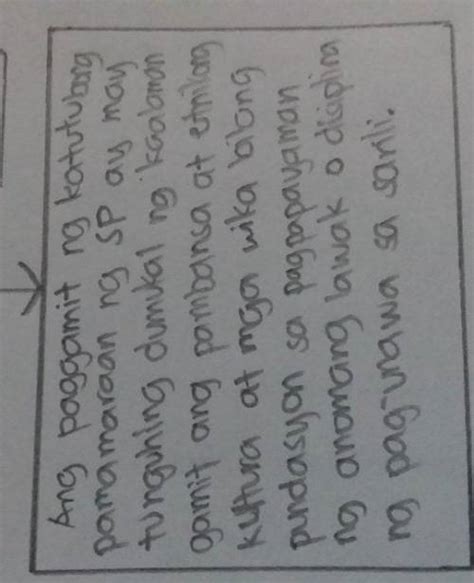 Ang paggamit ng katutubong
pamamaraan ng SP ay may
tunguhing dumukal ng kaalaman
gamit ang pambansa at etnilong
kultura at mga wika bilang
pundasyon sa pagpapayaman
ng anomang lawak o disiplina
ng pag-unawa sa sarili.